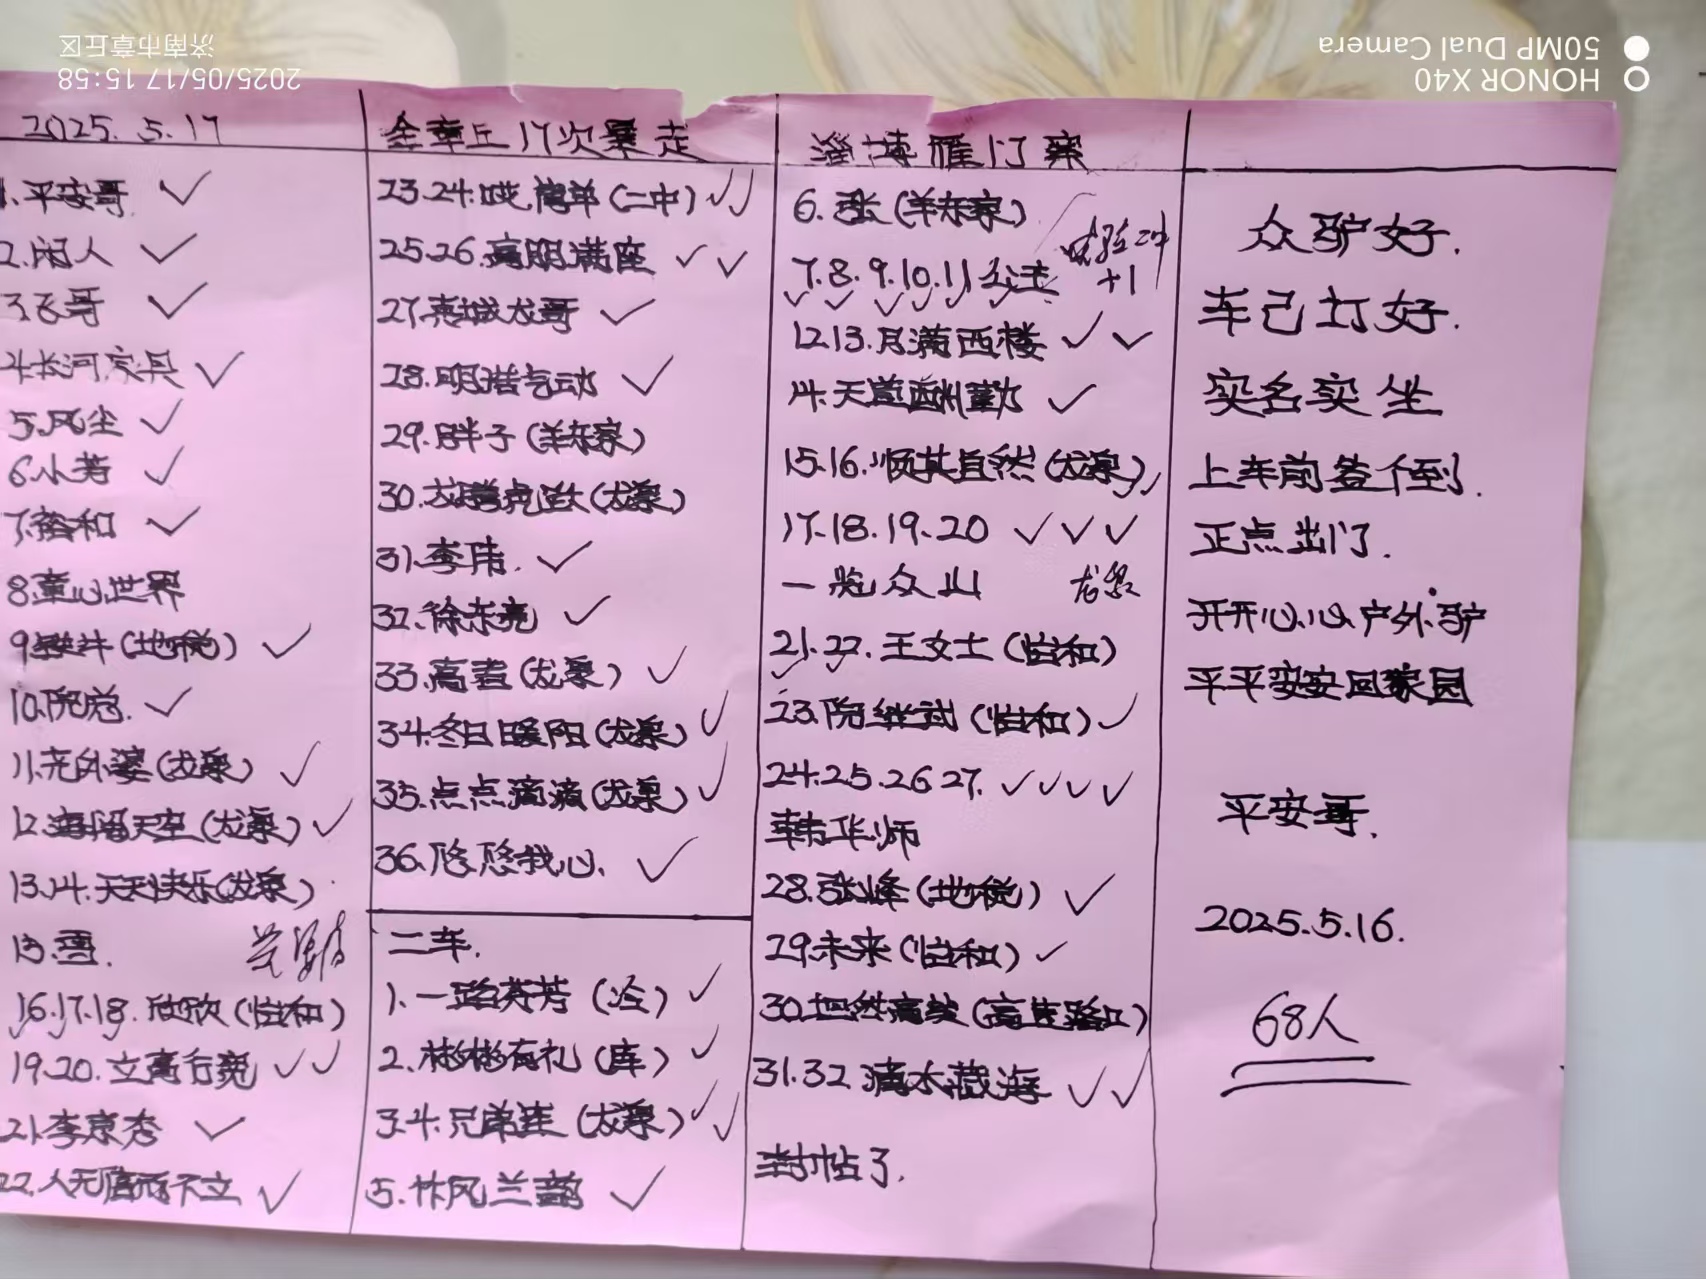 HONOR X40
50MP Dual Camera
2025/05/17 15:58
济南市章丘区
2025.5.17
1.平安哥 ✓
2.闲人 ✓
3.飞哥 ✓
4.长河家具 ✓
5.风尘 ✓
6.小芳 ✓
7.裕和 ✓
8.童心世界
9.铁牛(地税) ✓
10.院总. ✓
11.充外婆(龙泉) ✓
12.海阔天空(龙泉) ✓
13.14.天天快乐(龙泉)
15.雪.
16.17.18.欣欣(怡和)
19.20.立高行宽 ✓✓
21.李京秀 ✓
22.人无信而不立 ✓
金章丘17次暴走
23.24.哎,简单(二中) ✓✓
25.26.高朋满座 ✓✓
27.惠城龙哥 ✓
28.明浩气动 ✓
29.胖子(羊东家)
30.龙腾虎跃(龙泉)
31.李伟. ✓
32.徐东亮 ✓
33.高者(龙泉) ✓
34.冬日暖阳(龙泉) ✓
35.点点滴滴(龙泉) ✓
36.悠悠我心. ✓
二车.
1.一路芬芳(泾) ✓
2.彬彬有礼(库) ✓
3.4.兄弟连(龙泉) ✓✓
5.竹风兰韵 ✓
淄博雁门寨
6.张(羊东家)
试验二中
+1
7.8.9.10.11公主
✓✓✓✓✓
12.13.月满西楼 ✓✓
14.天道酬勤 ✓
15.16.顺其自然(龙泉)✓✓
17.18.19.20 ✓✓✓
一览众山 龙泉
21.22.王女士(怡和)
✓✓
23.院继武(怡和) ✓
24.25.26 27. ✓✓✓✓
韩华师
28.张峰(地税) ✓
29.未来(怡和) ✓
30.坦然高歌(高速路口)
31.32.滴水藏海 ✓✓
封帖了.
众驴好.
车已打好.
实名实坐
上车前签个到.
正点出门.
开开心心户外驴
平平安安回家园
平安哥.
2025.5.16.
68人